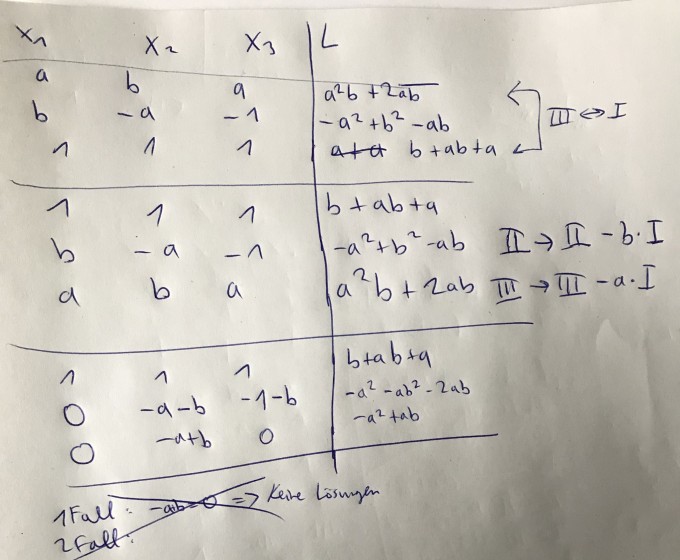 x₁ x₂ x₃ L
a b a a²b + 2ab
b -a -1 -a² + b² - ab III ↔ I
1 1 1 a+a b + ab + a
1 1 1 b + ab + a
b -a -1 -a² + b² - ab II → II - b·I
a b a a²b + 2ab III → III - a·I
1 1 1 b+ab+a
0 -a-b -1-b -a² - ab² - 2ab
0 -a+b 0 -a² + ab
1Fall: -ab=0 => Keine Lösungen
2Fall: